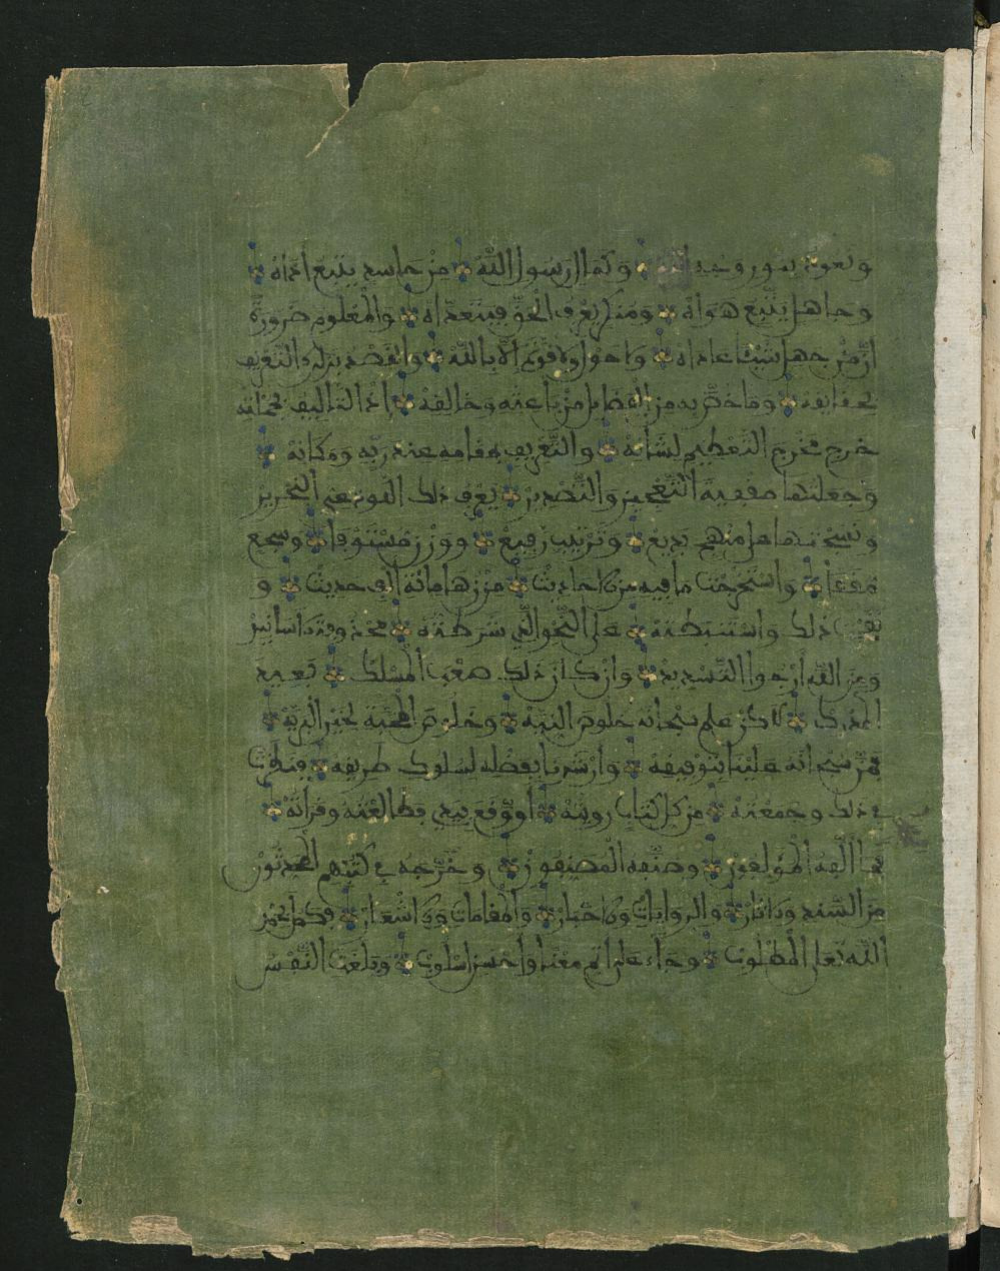 ونعوذ بنور وجه الله وكمال رسول الله من حاسد يتبع اذاه
وجاهل يتبع هواه ومن لم يعرف الحق فيتعداه والمعلوم ضرورة
ان من جهل شيئا عاداه ولا حول ولا قوة الا بالله والقصد بذلك التعريف
بحقايقه وما خص به من الفضايل من باعه وخالفه اذ التاليف بحمد الله
خرج مخرج التعظيم لشانه والتعريف بمقامه عند ربه ومكانه
وجعلتها مقفية التعجيز والتصدير يعرف ذلك النحرير
ونسجتها على منهج بديع وترتيب رفيع ووزن مستوفا وسجع
مقفا واستخرجت ما فيه من الاحاديث من زهاء مائة الف حديث و
ذلك واستنبطته على النحو الذي شرطته محذوفة الاسانيد
ومن الله ارجوا التسديد وان كان ذلك صعب المسلك بعيد
المدرك لاكن علم سبحانه خلوص النية وخلوص المحبة لخير البرية
فمن سبحانه علينا بتوفيقه وارشدنا بفضله لسلوك طريقه فنظرت
في ذلك وجمعته من كل كتاب رويته او وقع بيدي فطالعته وقرأته
مما الفه المؤلفون وصنفه المصنفون وخرجه في كتبهم المحدثون
من السنن والاثار والروايات والاخبار والمقامات والاشعار فكمل بحمد
الله تعلى المطلوب وجاء على اتم معنا واحسن اسلوب وبلغت النفس